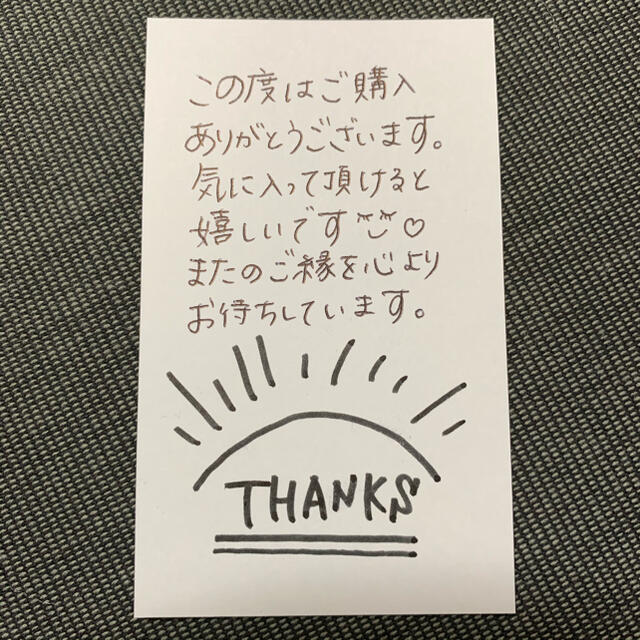 この度はご購入
ありがとうございます。
気に入って頂けると
嬉しいです♡
またのご縁を心より
お待ちしています。
THANKS